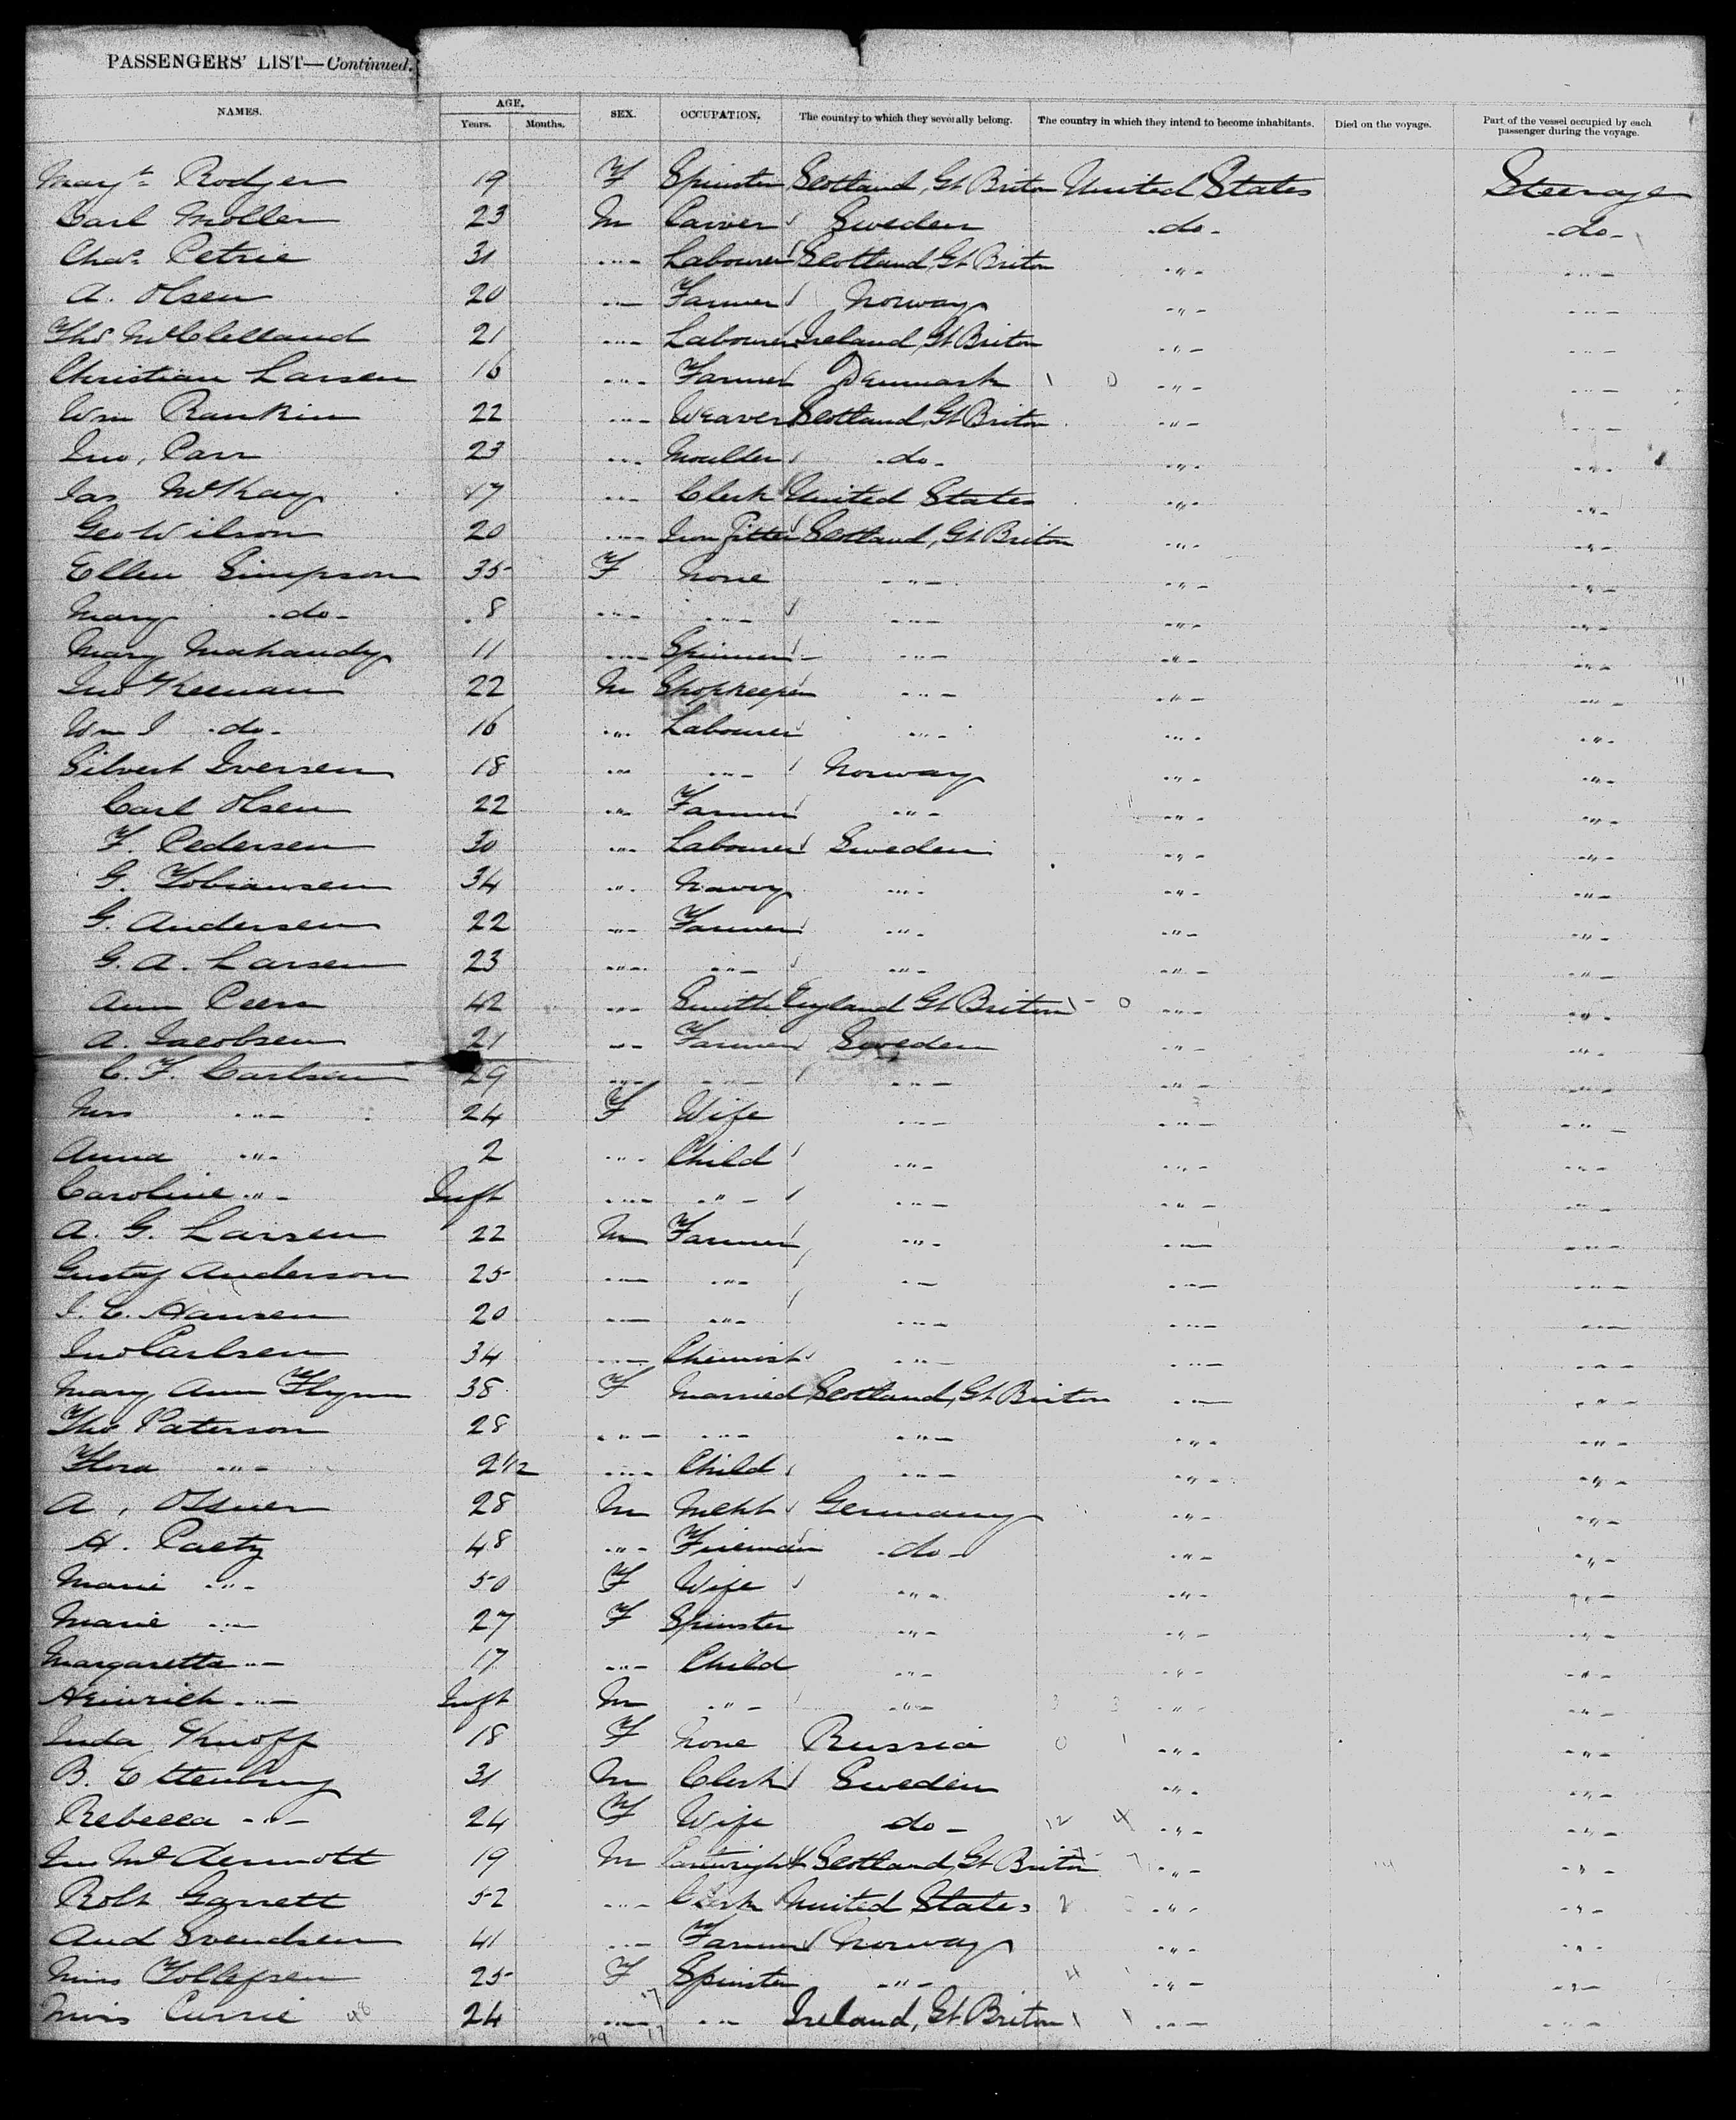 PASSENGERS' LIST—Continued.
NAMES. AGE. Years. Months. SEX. OCCUPATION. The country to which they severally belong. The country in which they intend to become inhabitants. Died on the voyage. Part of the vessel occupied by each passenger during the voyage.
Margt Rodger 19 F Spinster Scotland, Gt Briton United States Steerage
Carl Moller 23 M Carver Sweden -do- -do-
Chas Petrie 31 -"- Labourer Scotland, Gt Briton -"- -"-
A. Olsen 20 -"- Farmer Norway -"- -"-
Thos McClelland 21 -"- Labourer Ireland, Gt Briton -"- -"-
Christian Larsen 16 -"- Farmer Denmark -"- -"-
Wm Rankin 22 -"- Weaver Scotland, Gt Briton -"- -"-
Jno, Parr 23 -"- Moulder -do- -"- -"-
Jas McKay 17 -"- Clerk United States -"- -"-
Geo Wilson 20 -"- Iron Fitter Scotland, Gt Briton -"- -"-
Ellen Simpson 35 F None -"- -"- -"-
Mary -do- 8 -"- -"- -"- -"- -"-
Mary Mahandy 11 -"- Spinner -"- -"- -"-
Jno Keenan 22 M Shopkeeper -"- -"- -"-
Wm J -do- 16 -"- Labourer -"- -"- -"-
Silvert Iversen 18 -"- -"- Norway -"- -"-
Carl Olsen 22 -"- Farmer -"- -"- -"-
F. Pedersen 30 -"- Labourer Sweden -"- -"-
G. Tobiansen 34 -"- Navvy -"- -"- -"-
G. Andersen 22 -"- Farmer -"- -"- -"-
G. A. Larsen 23 -"- -"- -"- -"- -"-
Ann Peers 42 -"- Smith England Gt Briton -"- -"-
A. Jacobsen 21 -"- Farmer Sweden -"- -"-
C. F. Carlsen 29 -"- -"- -"- -"- -"-
Mrs -"- 24 F Wife -"- -"- -"-
Anna -"- 2 -"- Child -"- -"- -"-
Caroline -"- Inft -"- -"- -"- -"- -"-
A. G. Larsen 22 M Farmer -"- -"- -"-
Gustaf Anderson 25 -"- -"- -"- -"- -"-
J. C. Hansen 20 -"- -"- -"- -"- -"-
Jno Carlsen 34 -"- Chemist -"- -"- -"-
Mary Ann Flynn 38 F Married Scotland, Gt Briton -"- -"-
Thos Paterson 28 -"- -"- -"- -"- -"-
Flora -"- 2 1/2 -"- Child -"- -"- -"-
A, 28 M Mcht Germany -"- -"-
H. Paetz 48 -"- Fireman -do- -"- -"-
Marie -"- 50 F Wife -"- -"- -"-
Marie -"- 27 F Spinster -"- -"- -"-
Margaretta -"- 17 -"- Child -"- -"- -"-
Heinrich -"- Inft M -"- -"- -"- -"-
Knoff 18 F None Russia -"- -"-
B. Ettenburg 31 M Clerk Sweden -"- -"-
Rebecca -"- 24 F Wife do- -"- -"-
Jno McDermott 19 M Scotland, Gt Briton -"- -"-
Robt Garrett 52 -"- Clerk United States -"- -"-
And Svendsen 41 -"- Farmer Norway -"- -"-
Miss Tollefsen 25 F Spinster -"- -"- -"-
Miss Currie 24 -"- -"- Ireland, Gt Briton -"- -"-